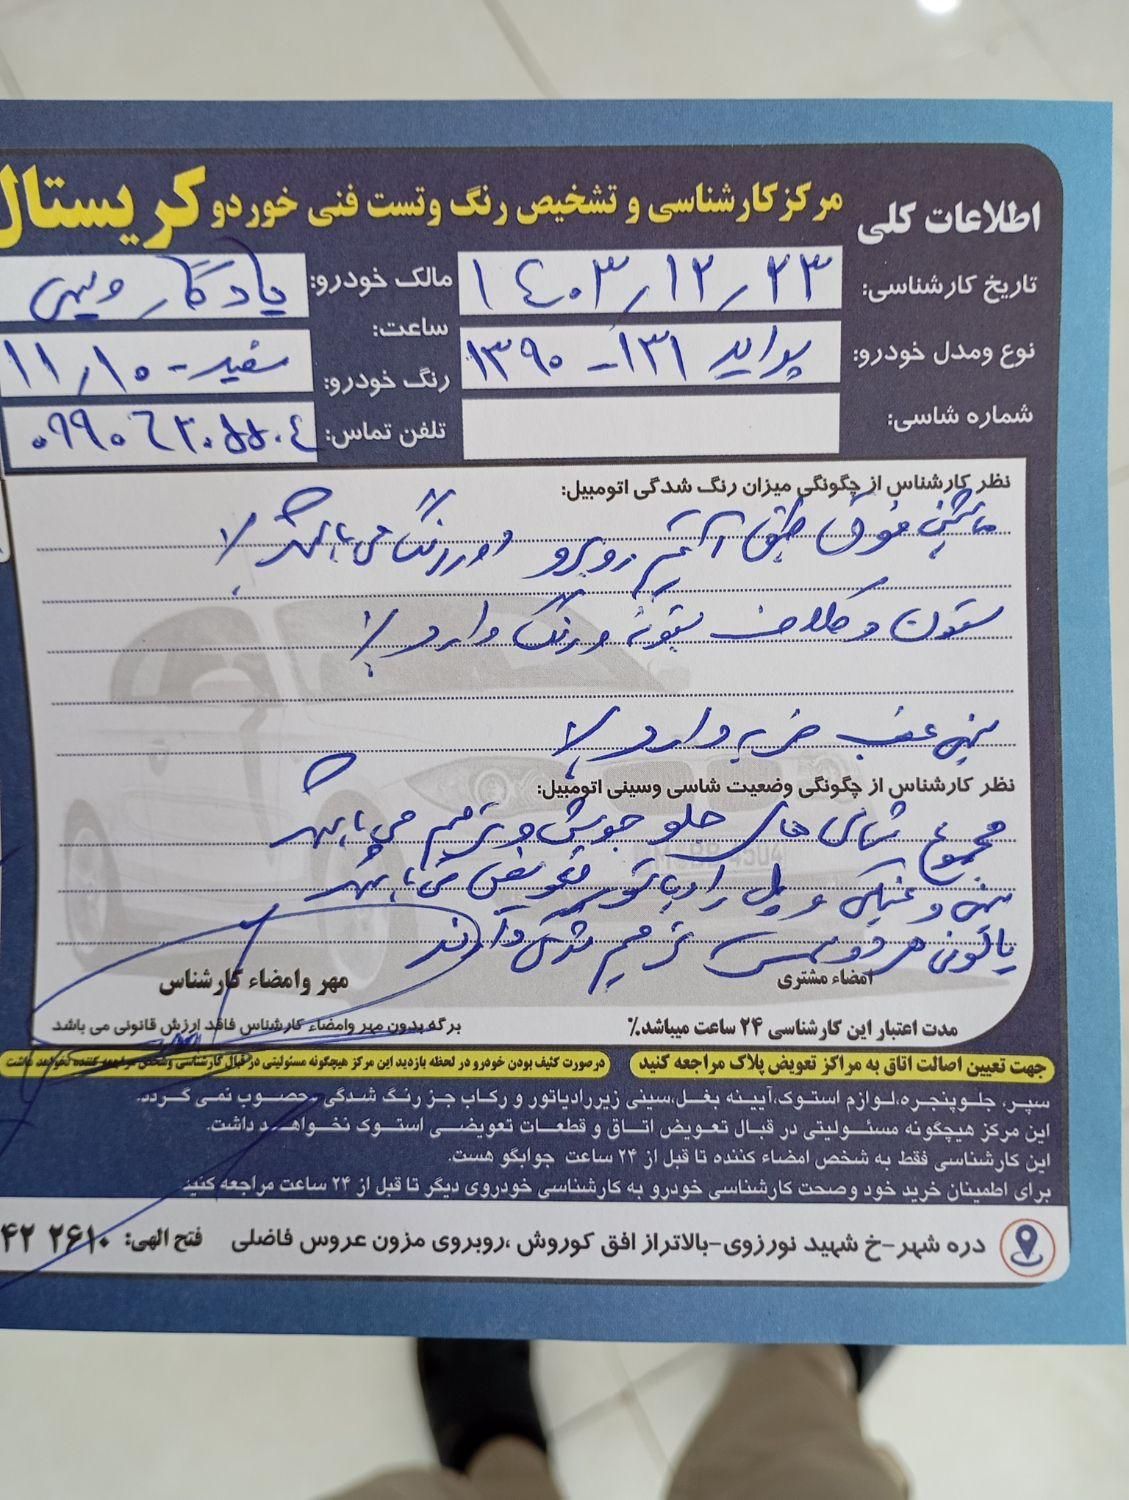 اطلاعات کلی
مرکز کارشناسی و تشخیص رنگ وتست فنی خوردو کریستال
تاریخ کارشناسی: ۱۴۰۳/۱۲/۲۳
مالک خودرو: یادگار
نوع ومدل خودرو: پراید ۱۳۱ - ۱۳۹۰
ساعت: ۱۱/۱۰
رنگ خودرو: سفید
شماره شاسی:
تلفن تماس:
نظر کارشناس از چگونگی میزان رنگ شدگی اتومبیل:
ماشین فوق طبق آیتم روبرو دور رنگ می باشد
ستون و کلاف بتونه و رنگ دارد
سینی عقب ضربه دارد
نظر کارشناس از چگونگی وضعیت شاسی وسینی اتومبیل:
مجموع شاسی های جلو جوش و ترمیم می باشد
سینی و عینکی و پل رادیاتور تعویض می باشد
پالونی هر دو سمت ترمیم شدگی دارند
امضاء مشتری
مهر وامضاء کارشناس
مدت اعتبار این کارشناسی ۲۴ ساعت میباشد%
برگه بدون مهر وامضاء کارشناس فاقد ارزش قانونی می باشد
جهت تعیین اصالت اتاق به مراکز تعویض پلاک مراجعه کنید
درصورت کثیف بودن خودرو در لحظه بازدید این مرکز هیچگونه مسئولیتی در قبال کارشناسی وشخص مراجعه کننده نخواهد داشت
سپر، جلوپنجره،لوازم استوک،آیینه بغل،سینی زیررادیاتور و رکاب جز رنگ شدگی محصوب نمی گردد.
این مرکز هیچگونه مسئولیتی در قبال تعویض اتاق و قطعات تعویضی استوک نخواهد داشت.
این کارشناسی فقط به شخص امضاء کننده تا قبل از ۲۴ ساعت جوابگو هست.
برای اطمینان خرید خود وصحت کارشناسی خودرو به کارشناسی خودروی دیگر تا قبل از ۲۴ ساعت مراجعه کنید
دره شهر-خ شهید نورزوی-بالاتراز افق کوروش ،روبروی مزون عروس فاضلی
فتح الهی: ۲۶۱۰ ۴۲